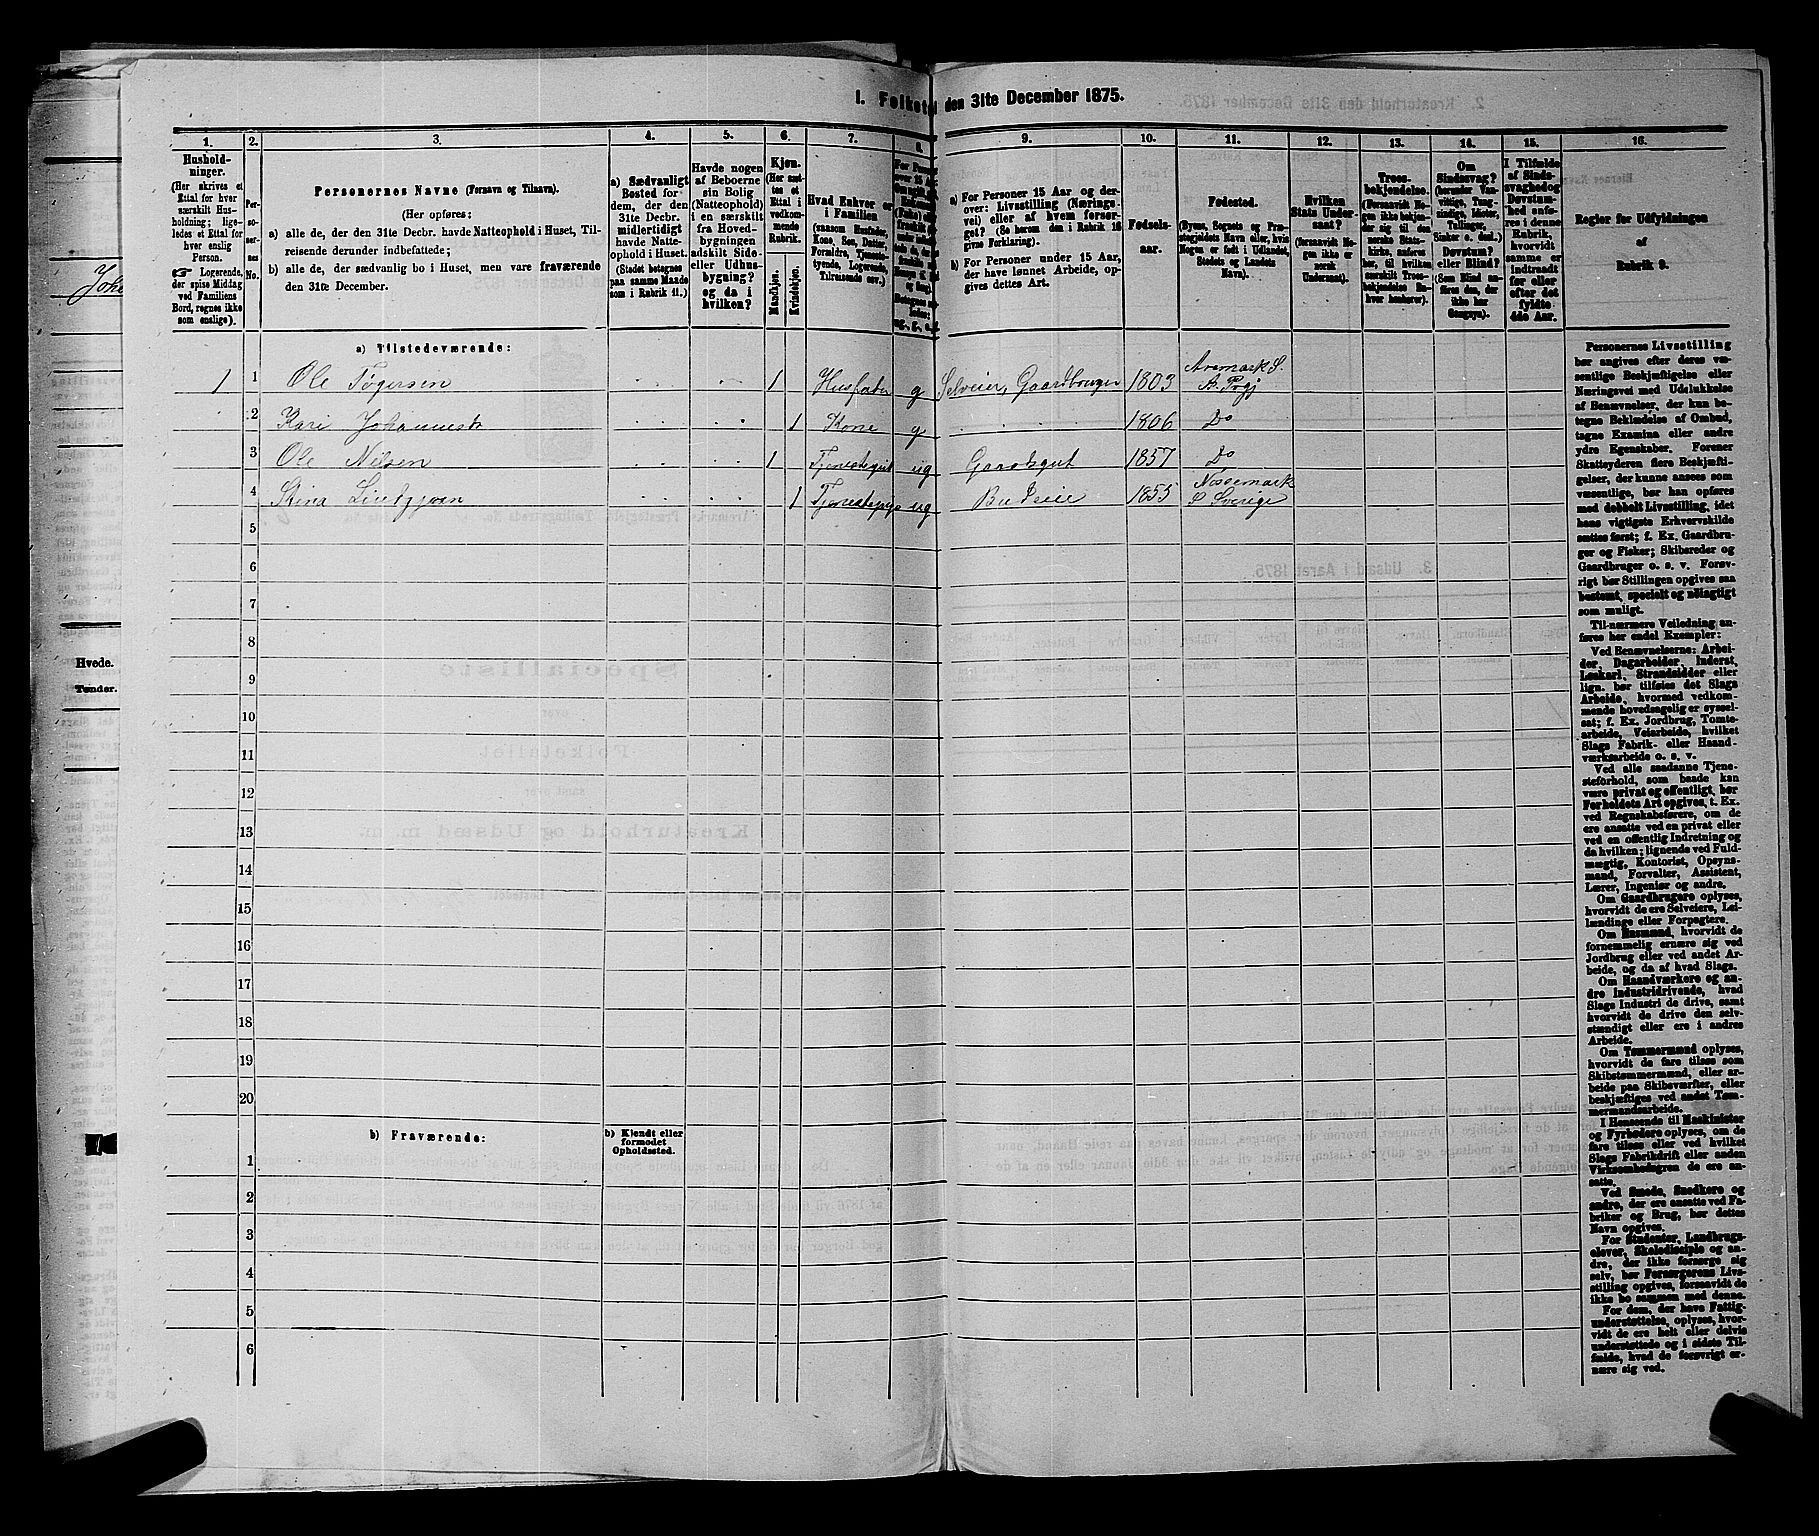 1. Folketal den 31te December 1875.
1. 2. 3. 4. 5. 6. 7. 8. 9. 10. 11. 12. 13. 14. 15. 16.
Hushold-
ninger.
(Her skrives et
Ettal for hver
særskilt Hus-
holdning; lige-
ledes et Ettal for
hver enslig
Person.
Logerende,
der spise Middag
ved Familiens
Bord, regnes ikke
som enslige).
Per-
so-
ner-
nes
No.
Personernes Navne (Fornavn og Tilnavn).
(Her opføres:
a) alle de, der den 31te Decbr. havde Natteophold i Huset, Til-
reisende derunder indbefattede;
b) alle de, der sædvanlig bo i Huset, men vare fraværende
den 31te December.
a) Sædvanligt
Bosted for
dem, der den
31te Decbr.
midlertidigt
havde Natte-
ophold i Huset.
(Stedet betegnes
paa samme Maade
som i Rubrik 11.)
Havde nogen
af Beboerne
sin Bolig
(Natteophold)
i en særskilt
fra Hoved-
bygningen
adskilt Side-
eller Udhus-
bygning?
og da i
hvilken?
Kjøn.
(Her sæt-
tes et
Ettal i
vedkom-
mende
Rubrik.
Mandkjøn.
Kvindekjøn.
Hvad Enhver er
i Familien
(saasom Husfader,
Kone, Søn, Datter,
Forældre, Tjeneste-
tyende, Logerende,
Tilreisende osv.)
a) For Personer 15 Aar og der-
over: Livsstilling (Nærings-
vei) eller af hvem forsør-
get? (Se herom den i Rubrik 16
givne Forklaring).
b) For Personer under 15 Aar,
der have lønnet Arbeide, op-
gives dettes Art.
Fødsels-
aar.
Fødested.
(Byens, Sognets og Præ-
stegjeldets Navn eller, hvis
Nogen er født i Udlandet,
Stedets og Landets
Navn).
Hvilken
Stats Under-
saat?
(forsaavidt No-
gen ikke er
norsk
Undersaat).
Troes-
bekjendelse.
(Forsaavidt No-
gen ikke bekjen-
der sig til den
norske Stats-
kirke, anføres
her, til hvilket
særskilt Troes-
bekjendelse En-
hver henhører).
Om
Sindssvag?
(herunder Van-
vittige, Tung-
sindige, Idioter,
Tullinger,
Sinker o. desl.)
Døvstum?
eller Blind?
(Som Blind an-
føres den, der
ikke har
Gangsyn).
I Tilfælde
af Sinds-
svaghed og
Døvstum-
hed anfø-
res i denne
Rubrik,
hvorvidt
samme er
indtraadt
før eller
efter det
fyldte
4de Aar.
Regler for Udfyldningen
af
Rubrik 9.
a) Tilstedeværende:
1 1 Ole Tøgersen 1 Husfader g Selveier, Gaardbruger 1803 Aremark S. A. Prgj
2 Kari Johannesdr 1 Kone g 1806 Do
3 Ole Nilsen 1 Tjenestegut ug Gaardsgut 1857 Do
4 Stina 1 Tjenestepige ug Budeie 1855 Nøsemark S Sverige
5
6
7
8
9
10
11
12
13
14
15
16
17
18
19
20
b) Fraværende:
b) Kjendt eller
formodet
Opholdssted.
1
2
3
4
5
6
Personernes Livsstilling
bør angives efter deres væ-
sentlige Beskjæftigelse eller
Næringsvei med Udelukkelse
af Benævnelser, der kun be-
tegne Beklædelse af Ombud,
tagne Examina eller andre
ydre Egenskaber. Forener
Skatteyderen flere Beskjæfti-
gelser, der kunne ansees som
væsentlige, bør han opføres
med dobbelt Livsstilling, idet
hans vigtigste Erhvervskilde
sættes først; f. Ex. Gaardbru-
ger og Fisker; Skibsreder og
Gaardbruger o. s. v. Forøv-
rigt bør Stillingen opgives saa
bestemt, specielt og nøiagtigt
som muligt.
Til nærmere Veiledning an-
føres her endel Exempler:
Ved Benævnelserne: Arbei-
der, Dagarbeider, Inderst,
Løskarl, Strandsidder eller
lign. bør tilføies det Slags
Arbeide, hvormed vedkom-
mende hovedsagelig er syssel-
sat; f. Ex. Jordbrug, Tomte-
arbeide, Veiarbeide, hvilket
Slags Fabrik- eller Haand-
værksarbeide o. s. v.
Ved alle saadanne Tjene-
steforhold, som baade kan
være privat og offentlig, bør
Forholdets Art opgives, t. Ex.
ved Regnskabsførere, om de
ere ansatte ved en privat eller
ved en offentlig Indretning og
da hvilken; lignende ved Fuld-
mægtig, Kontorist, Opsyns-
mand, Forvalter, Assistent,
Lærer, Ingeniør og andre.
Om Gaardbrugere oplyses,
hvorvidt de ere Selveiere, Lei-
lændinge eller Forpagtere.
Om Husmænd, hvorvidt de
fornemmelig ernære sig ved
Jordbrug eller ved andet Ar-
beide, og da af hvad Slags.
Om Haandværkere og an-
dre Industridrivende, hvad
Slags Industri de drive, samt
hvorvidt de drive den selv-
stændigt eller ere i andres
Arbeide.
Om Tømmermænd oplyses,
hvorvidt de fare tilsøs som
Skibstømmermænd, eller ar-
beide paa Skibsværfter, eller
beskjæftiges ved andet Tøm-
mermandsarbeide.
I Henseende til Maskinister
og Fyrbødere oplyses, om de
fare tilsøs eller ved hvilket
Slags Fabrikdrift eller anden
Virksomhedsgren de ere an-
satte.
Ved Smede, Snedkere og
andre, der ere ansatte ved Fa-
briker og Brug, bør dettes
Navn opgives.
For Studenter, Landbrugs-
elever, Skoledisciple og an-
dre, der ikke forsørge sig
selv, bør Forsørgerens Livs-
stilling opgives, forsaavidt de
ikke bo sammen med denne.
For dem, der have Fattig-
understøttelse, oplyses, hvor-
vidt de ere helt eller delvis
understøttede og i sidste Til-
fælde, hvad de forøvrigt er-
nære sig ved.
Hvede.
Tønder.